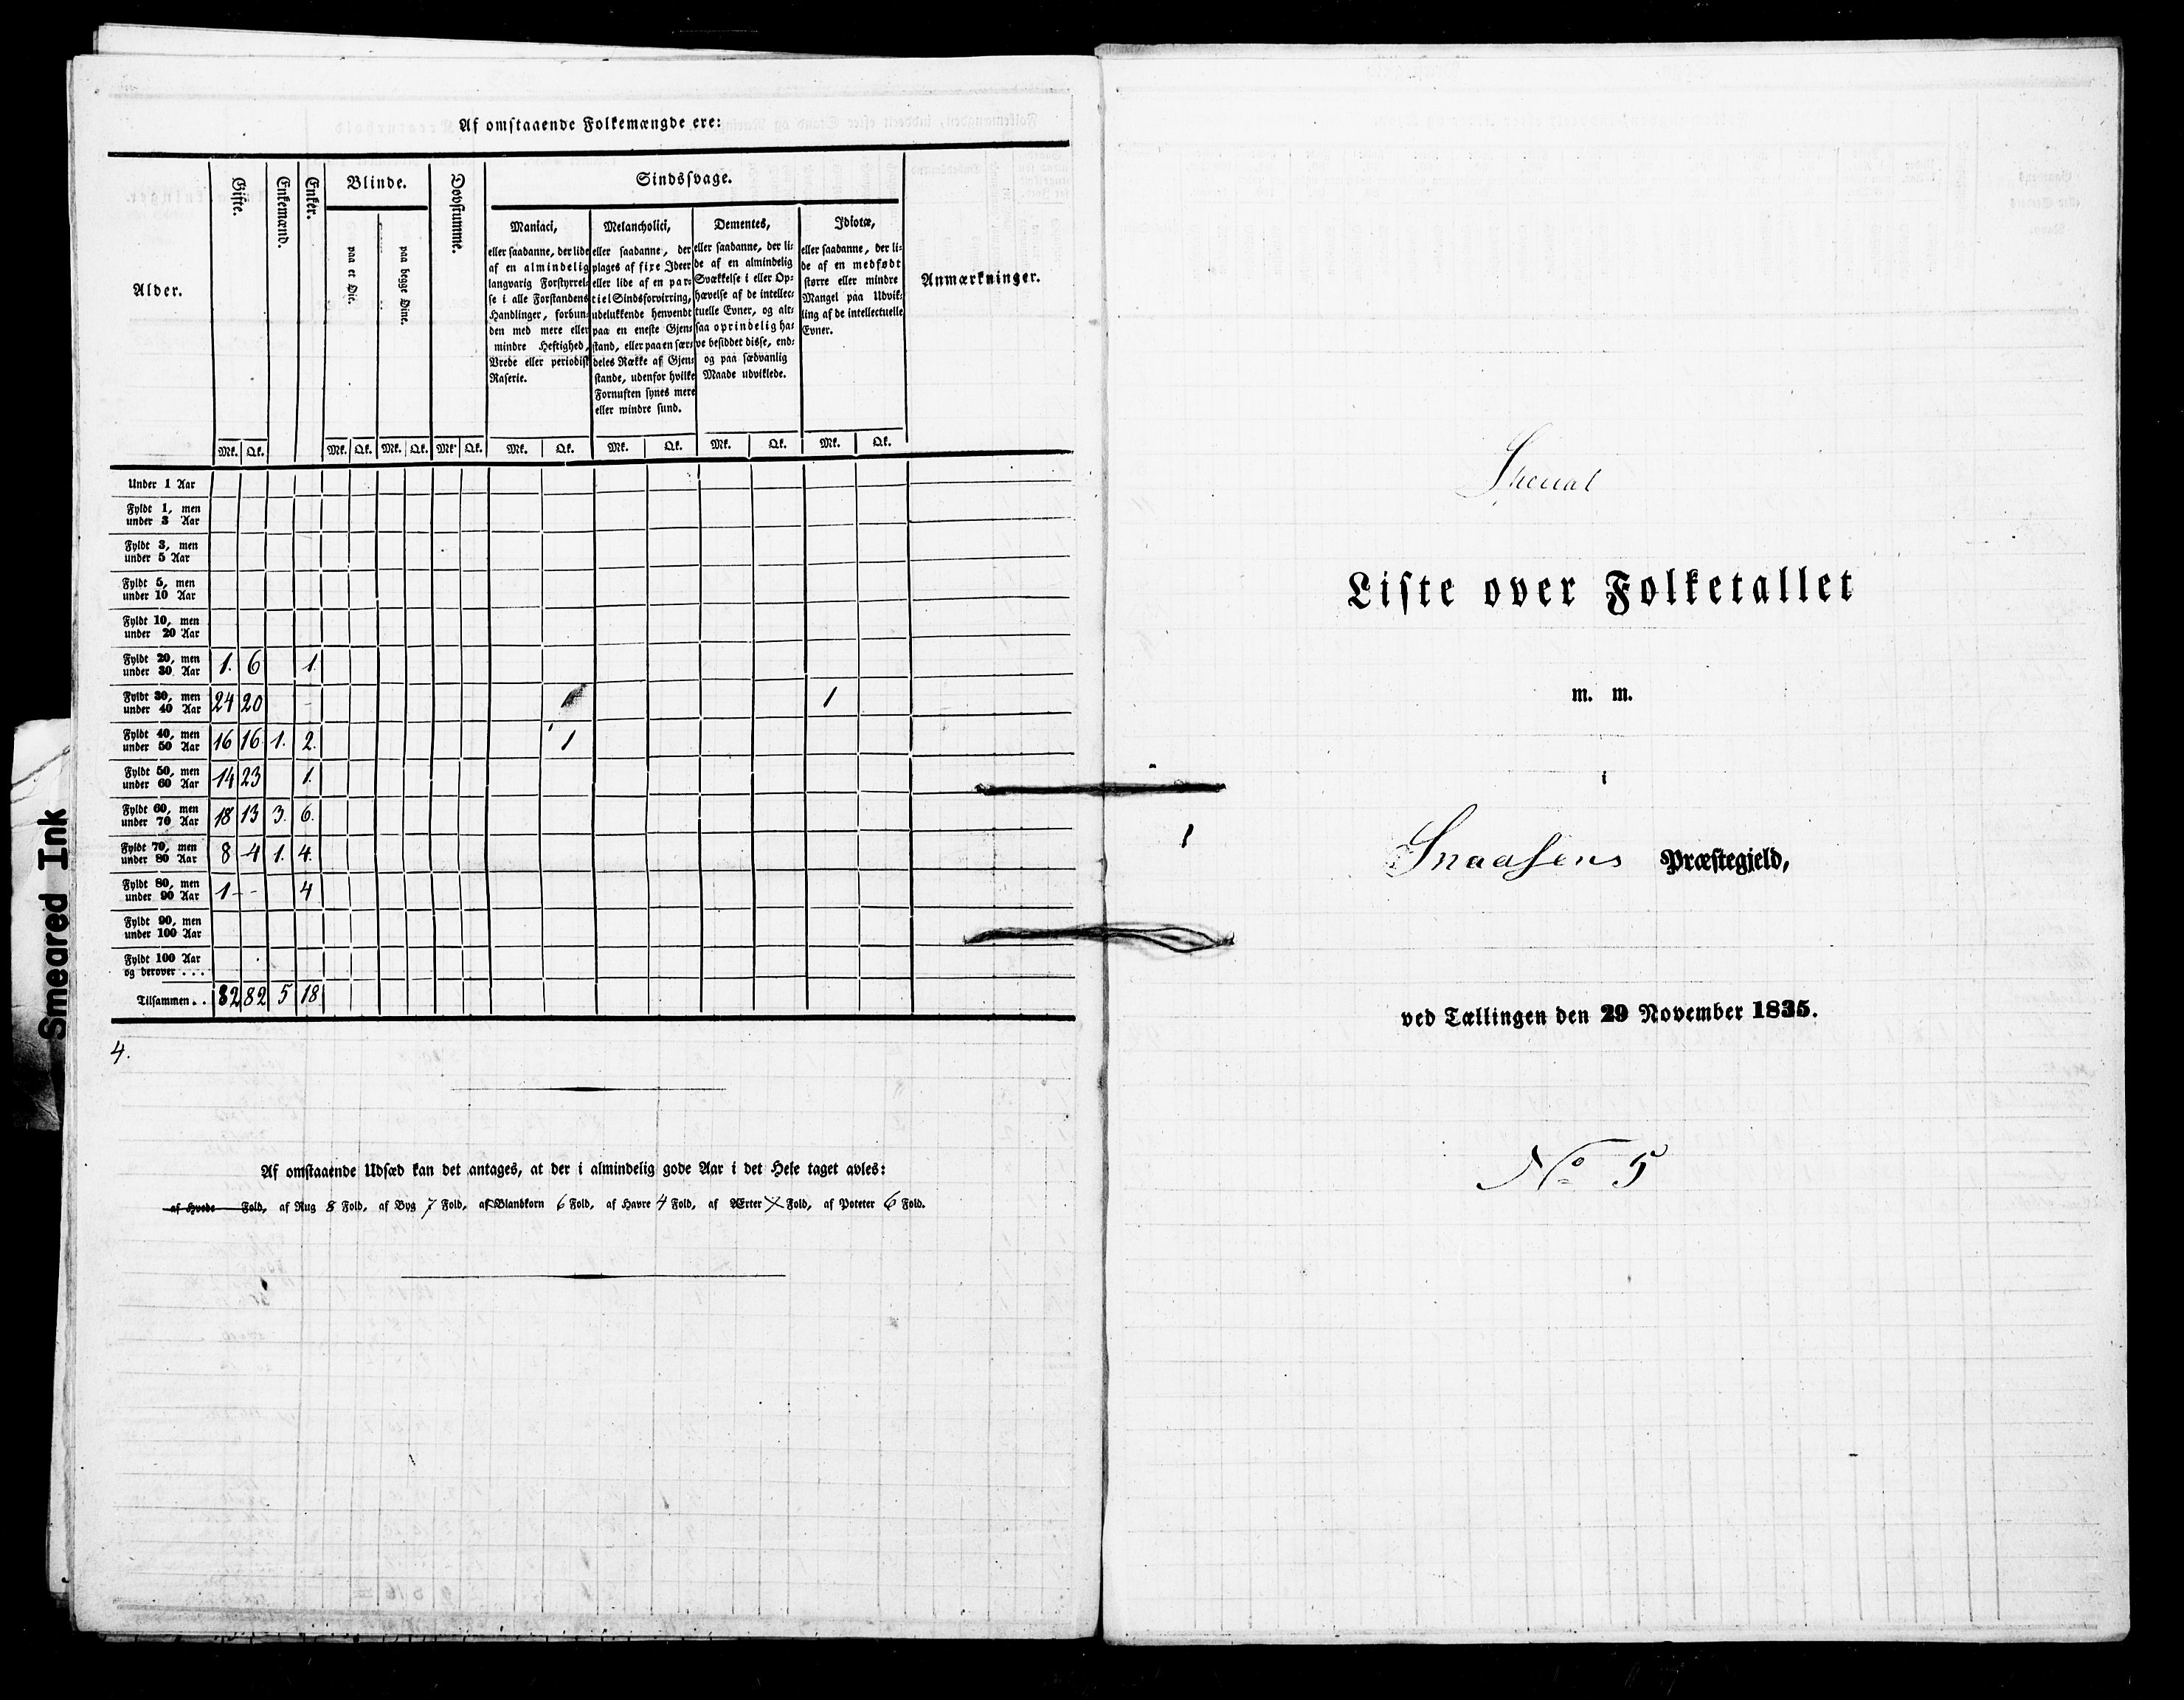 Af omstaaende Folkemængde ere:
Alder.
Gifte.
Enkemænd.
Enker.
Blinde.
paa et Øie.
paa begge Øine.
Døvstumme.
Sindssvage.
Maniaci,
eller saadanne, der lide
af en almindelig
langvarig Forstyrrel-
se i alle Forstandens
Handlinger, forbun-
den med mere eller
mindre Heftighed,
Vrede eller periodisk
Raserie.
Melancholici,
eller saadanne, der
plages af fixe Ideer
eller lide af en par-
tiel Sindsforvirring,
udelukkende henvendt
paa en eneste Gjen-
stand, eller paa en sær-
deles Række af Gjen-
stande, udenfor hvilke
Fornuften synes mere
eller mindre sund.
Dementes,
eller saadanne, der li-
de af en almindelig
Svækkelse i eller Op-
hævelse af de intellec-
tuelle Evner, og alt-
saa oprindelig ha-
ve besiddet disse, end-
og paa sædvanlig
Maade udviklede.
Idiotæ,
eller saadanne, der li-
de af en medfødt
større eller mindre
Mangel paa Udvik-
ling af de intellectuelle
Evner.
Anmærkninger.
Mk. Qk. Mk. Qk. Mk. Qk. Mk. Qk. Mk. Qk. Mk. Qk. Mk. Qk. Mk. Qk.
Under 1 Aar
Fyldt 1, men
under 3 Aar
Fyldt 3, men
under 5 Aar
Fyldt 5, men
under 10 Aar
Fyldt 10, men
under 20 Aar
Fyldt 20, men
under 30 Aar 1. 6 1.
Fyldt 30, men
under 40 Aar 24 20 1
Fyldt 40, men
under 50 Aar 16 16 1. 2. 1
Fyldt 50, men
under 60 Aar 14 23 1.
Fyldt 60, men
under 70 Aar 18 13 3. 6.
Fyldt 70, men
under 80 Aar 8 4 1. 4.
Fyldt 80, men
under 90 Aar 1 - - 4
Fyldt 90, men
under 100 Aar
Fyldt 100 Aar
og derover . . .
Tilsammen . . 82 82 5 18
4.
Af omstaaende Udsæd kan det antages, at der i almindelig gode Aar i det Hele taget avles:
af Hvede Fold, af Rug 8 Fold, af Byg 7 Fold, af Blandkorn 6 Fold, af Havre 4 Fold, af Ærter X Fold, af Poteter 6 Fold.
Smeared Ink
Liste over Folketallet
m. m.
i
Snaasens Præstegjeld,
ved Tællingen den 29 November 1835.
No 5